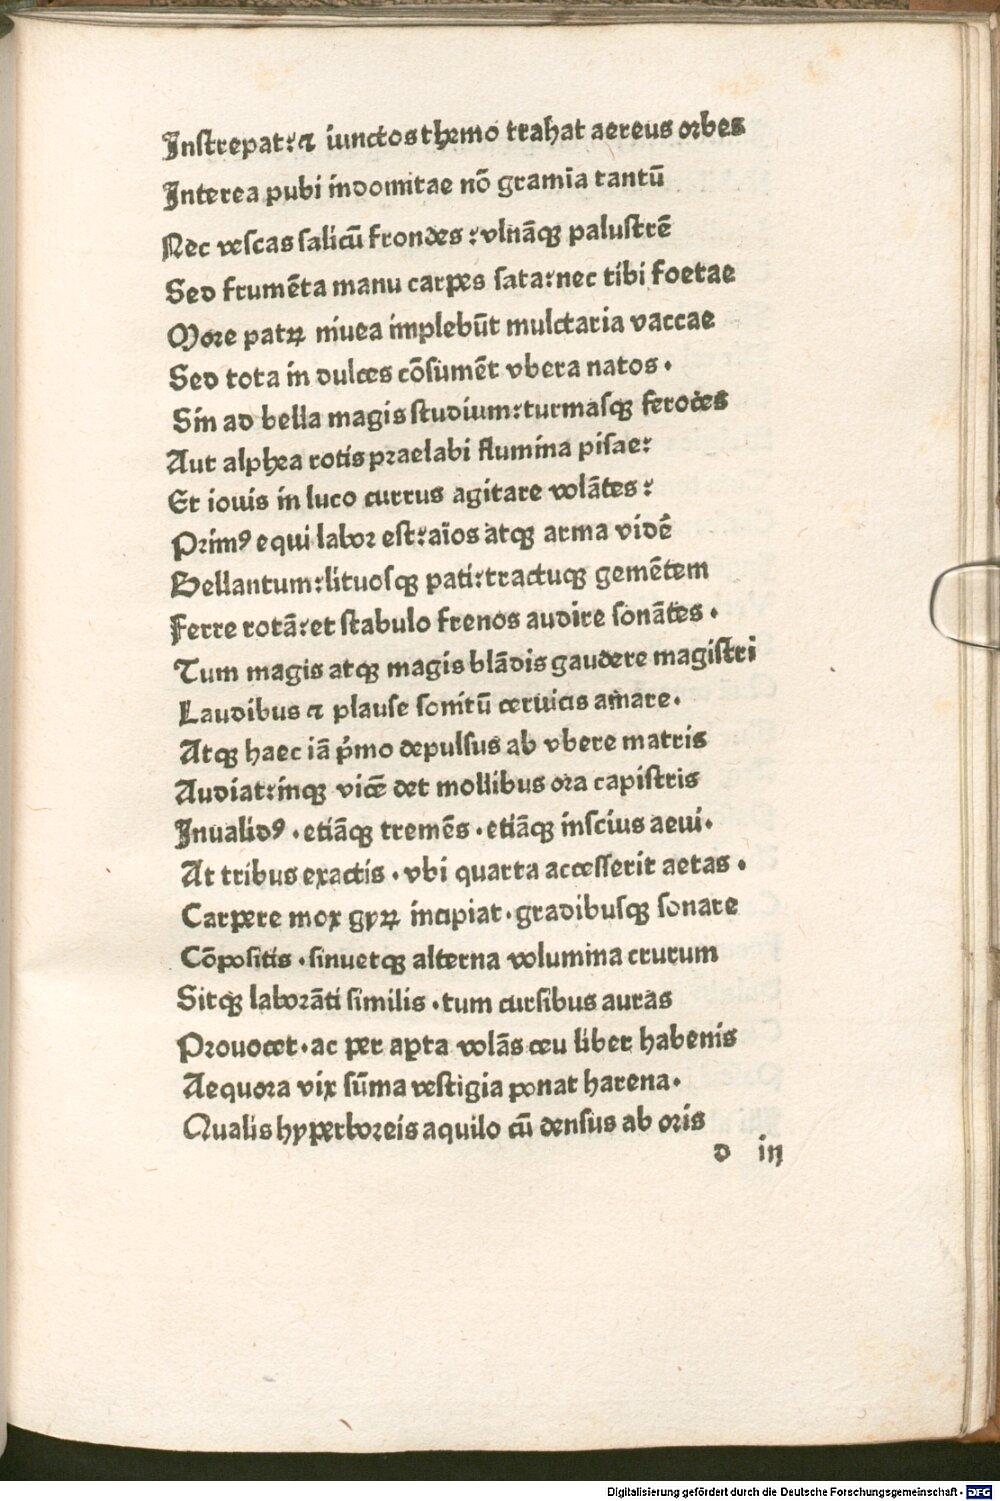 Instrepat: ⁊ iunctos themo trahat aereus orbes
Interea pubi indomitae nō gramīa tantū
Nec vescas salicū frondes: vlnāqꝫ palustrē
Sed frumēta manu carpes sata: nec tibi foetae
More patꝝ niuea implebūt mulctaria vaccae
Sed tota in dulces cōsumēt vbera natos .
Sin ad bella magis studium: turmasqꝫ feroces
Aut alphea rotis praelabi flumina pisae:
Et iouis in luco currus agitare volātes:
Primꝰ equi labor est: aīos atqꝫ arma vidē
Bellantum: lituosqꝫ pati: tractuqꝫ gemētem
Ferre rotā: et stabulo frenos audire sonātes .
Tum magis atqꝫ magis blādis gaudere magistri
Laudibus ⁊ plause sonitū ceruicis amare.
Atqꝫ haec iā p̓mo depulsus ab vbere matris
Audiat: inqꝫ vicē det mollibus ora capistris
Inualidꝰ . etiāqꝫ tremēs . etiāqꝫ inscius aeui.
At tribus exactis . vbi quarta accesserit aetas .
Carpere mox gyꝝ incipiat . gradibusqꝫ sonare
Cōpositis . sinuetqꝫ alterna volumina crurum
Sitqꝫ laborāti similis . tum cursibus auras
Prouocet . ac per aꝑta volās ceu liber habenis
Aequora vix sūma vestigia ponat harena.
Qualis hyperboreis aquilo cū densus ab oris
d iii
Digitalisierung gefördert durch die Deutsche Forschungsgemeinschaft - DFG